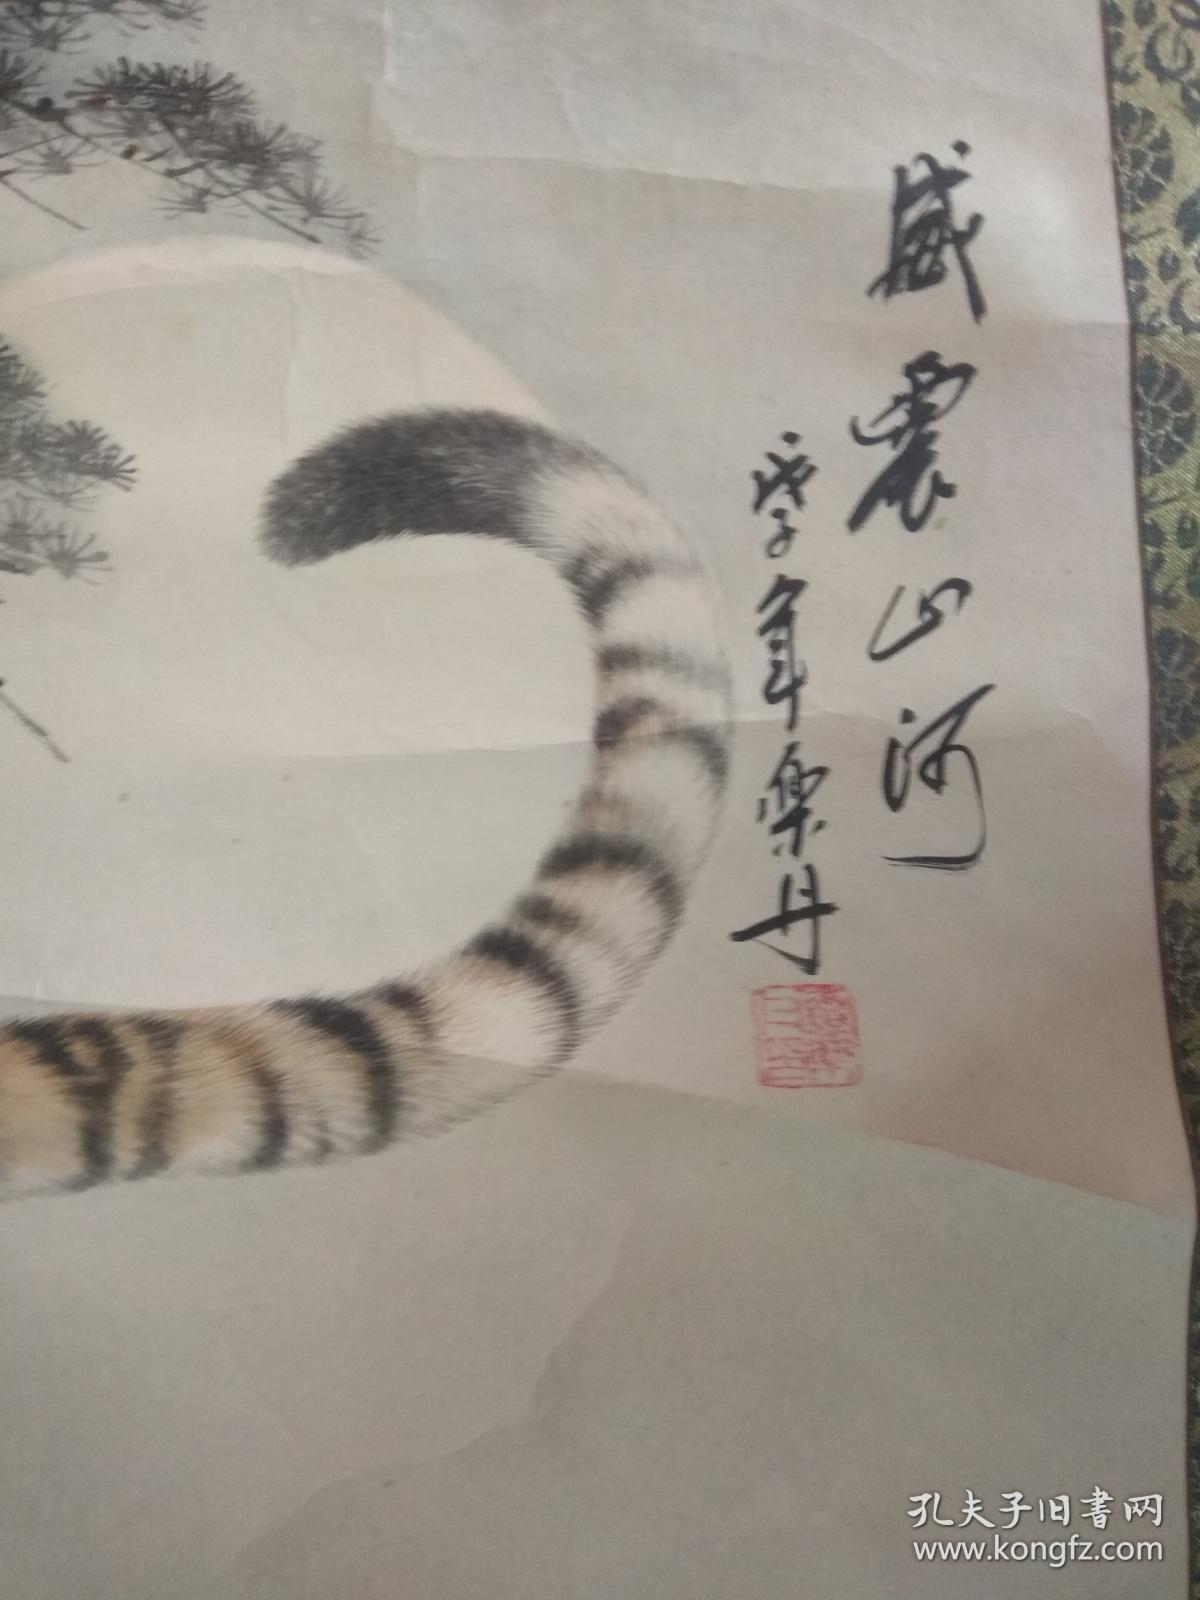 威震山河
戊子年樂丹
孔夫子旧書网
www.kongfz.com